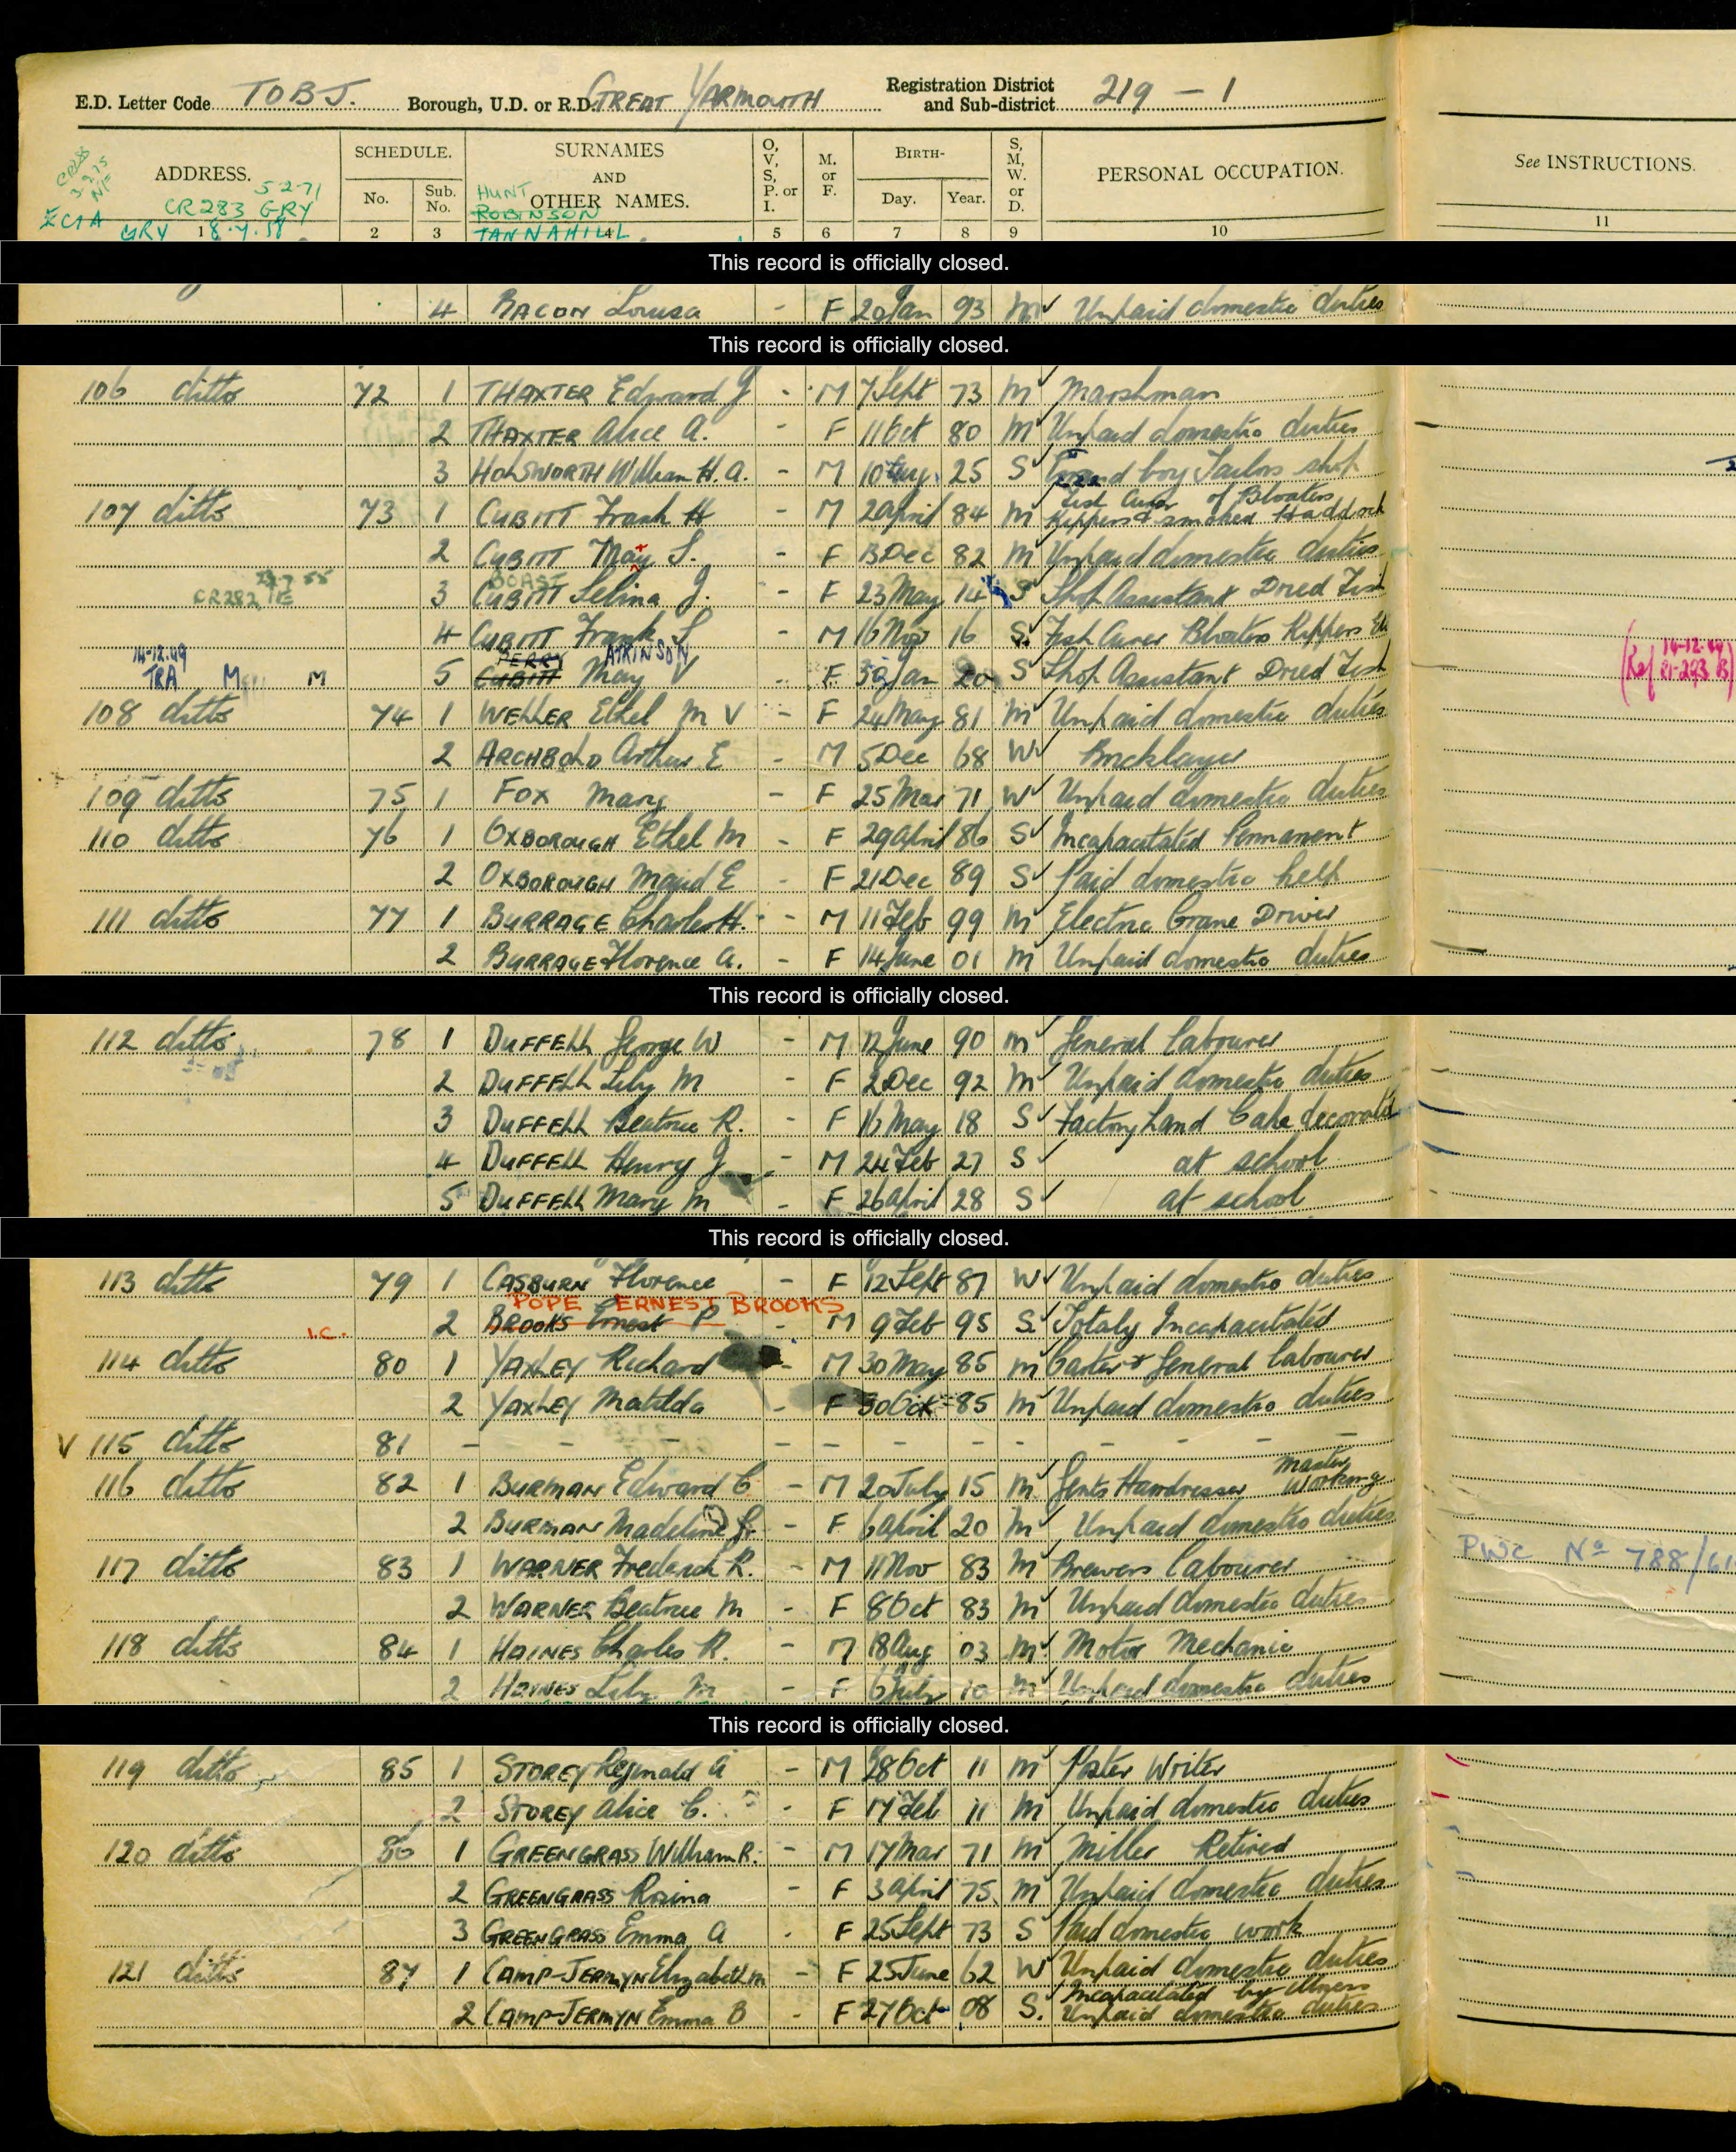 E.D. Letter Code TOBJ. Borough, U.D. or R.D. GREAT YARMOUTH Registration District and Sub-district 219 - 1
ADDRESS. SCHEDULE. No. Sub. No. SURNAMES AND OTHER NAMES. O, V, S, P. or I. M. or F. BIRTH- Day. Year. S, M, W. or D. PERSONAL OCCUPATION. See INSTRUCTIONS.
CR283 GRY 5-2-71 HUNT
ROBINSON
GRY 8.7.58 TANNAHILL
1 2 3 4 5 6 7 8 9 10 11
This record is officially closed.
4 BACON Louisa - F 20 Jan 93 M Unpaid domestic duties
This record is officially closed.
106 ditto 72 1 THAXTER Edward J - M 7 Sept 73 M Marshman
2 THAXTER Alice A. - F 11 Oct 80 M Unpaid domestic duties
3 HOLSWORTH William H. A. - M 10 Aug 25 S Errand boy Tailors shop
107 ditto 73 1 CUBITT Frank H - M 2 April 84 M Fish Curer of Bloaters Kippers & smoked Haddock
2 CUBITT May S. - F 13 Dec 82 M Unpaid domestic duties
BOAST
CR282
3 CUBITT Selina J. - F 23 May 14 S Shop Assistant Dried Fish
4 CUBITT Frank S - M 16 Nov 16 S Fish Curer Bloaters Kippers Etc
14-12.49 PERRY ATKINSON 14-12-49
TRA M 5 CUBITT May V F 30 Jan 20 S Shop Assistant Dried Fish
108 ditto 74 1 WELLER Ethel M V - F 24 May 81 M Unpaid domestic duties
2 ARCHBOLD Arthur E - M 5 Dec 68 W Bricklayer
109 ditto 75 1 FOX Mary - F 25 Mar 71 W Unpaid domestic duties
110 ditto 76 1 OXBOROUGH Ethel M - F 29 April 86 S Incapacitated Permanent
2 OXBOROUGH Maud E - F 21 Dec 89 S Paid domestic help
111 ditto 77 1 BURRAGE Charles H. - M 11 Feb 99 M Electric Crane Driver
2 BURRAGE Florence A. - F 14 June 01 M Unpaid domestic duties
This record is officially closed.
112 ditto 78 1 DUFFELL George W - M 12 June 90 M General Labourer
2 DUFFELL Lily M - F 2 Dec 92 M Unpaid domestic duties
3 DUFFELL Beatrice R. - F 16 May 18 S Factory hand Cake decorator
4 DUFFELL Henry J - M 24 Feb 27 S at school
5 DUFFELL Mary M - F 26 April 28 S at school
This record is officially closed.
113 ditto 79 1 CASBURN Florence - F 12 Sept 87 W Unpaid domestic duties
POPE ERNEST BROOKS
I.C. 2 BROOKS Ernest P - M 9 Feb 95 S. Totaly Incapacitated
114 ditto 80 1 YAXLEY Richard - M 30 May 85 M Carter & General Labourer
2 YAXLEY Matilda - F 30 Oct 85 M Unpaid domestic duties
V 115 ditto 81 - - - - - - - - - - -
116 ditto 82 1 BURMAN Edward C - M 20 July 15 M Gents Hairdresser Master Working
2 BURMAN Madeline - F 6 April 20 M Unpaid domestic duties
117 ditto 83 1 WARNER Frederick R. - M 11 Nov 83 M Brewers Labourer PWC No 788/
2 WARNER Beatrice M - F 8 Oct 83 M Unpaid domestic duties
118 ditto 84 1 HAINES Charles R. - M 18 Aug 03 M Motor Mechanic
2 HAINES Lily M - F 6 July 10 M Unpaid domestic duties
This record is officially closed.
119 ditto 85 1 STOREY Reginald A - M 28 Oct 11 M Poster Writer
2 STOREY Alice C. - F 17 Feb 11 M Unpaid domestic duties
120 ditto 86 1 GREENGRASS William R. - M 17 Mar 71 M Miller Retired
2 GREENGRASS Rosina - F 3 April 75 M Unpaid domestic duties
3 GREENGRASS Emma A - F 25 Sept 73 S Paid domestic work
121 ditto 87 1 CAMP-JERMYN Elizabeth M - F 25 June 62 W Unpaid domestic duties
2 CAMP-JERMYN Emma B - F 27 Oct 08 S. Incapacitated by illness Unpaid domestic duties